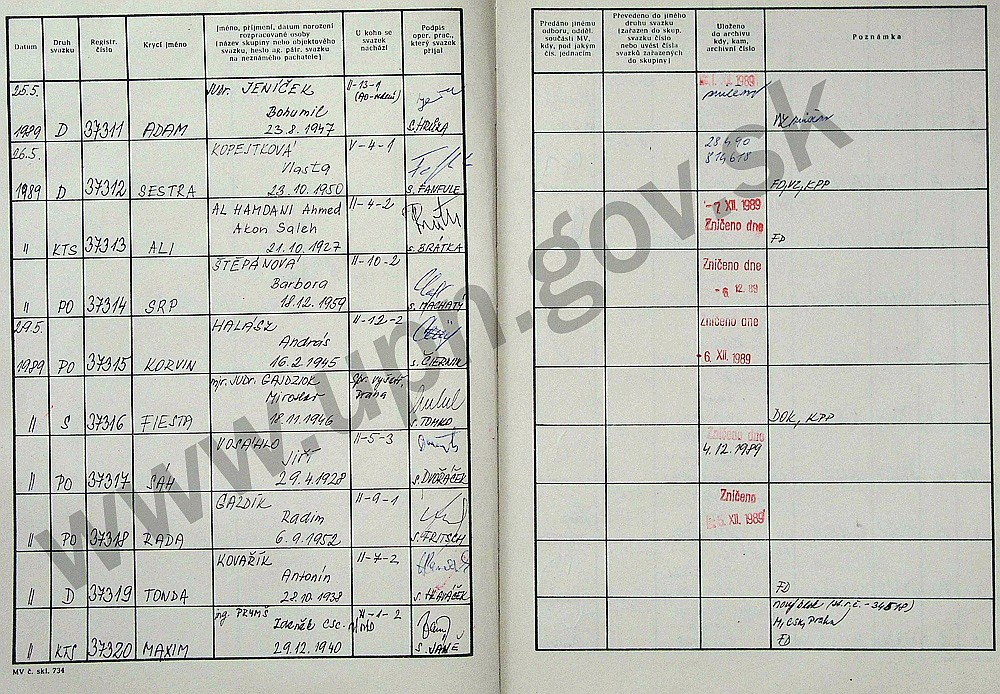 Datum
Druh svazku
Registr. číslo
Krycí jméno
Jméno, příjmení, datum narození
rozpracované osoby
(název skupiny nebo objektového
svazku, heslo ag. pátr. svazku
na neznámého pachatele)
U koho se
svazek
nachází
Podpis
oper. prac.,
který svazek
přijal
Předáno jinému
odboru, odděl.
součásti MV,
kdy, pod jakým
čís. jednacím
Převedeno do jiného
druhu svazku
(zařazen do skup.
svazku číslo
nebo uvést čísla
svazků zařazených
do skupiny)
Uloženo
do archivu
kdy, kam,
archivní číslo
Poznámka
25.5. JUDr. JENÍČEK II-13-1
Bohumil
1989 D 37311 ADAM 23.8.1947 S. HRUŠKA
1989
26.5. KOPEJTKOVÁ V-4-1 28490
Vlasta 814618
1989 D 37312 SESTRA 23.10.1950 S. FANFULE FD, VC, KPP
AL HAMDANI Ahmed II-4-2 -7 XII. 1989
Akon Saleh Zničeno dne
II KTS 37313 ALI 21.10.1927 S. BRÁTKA FD
ŠTĚPÁNOVÁ II-10-2 Zničeno dne
Barbora -6. 12. 89
II PO 37314 SRP 18.12.1959 S. MACHATÝ
29.5. HALÁSZ II-12-2 Zničeno dne
András
1989 PO 37315 KORVIN 16.2.1945 S. ČIERNIK -6 XII. 1989
mjr. JUDr. GAJDZIOK
Miroslav Praha
II S 37316 FIESTA 18.11.1946 S. TOMKO DOK, KPP
VOSÁHLO II-5-3 Zničeno dne
Jiří 4.12.1989
II PO 37317 ŠÁH 29.4.1928 S. DVOŘÁČEK
GAŽDÍK II-9-1 Zničeno
Radim XII. 1989
II PO 37318 RADA 6.9.1952 S. FRITSCH
KOVAŘÍK II-7-2
Antonín
II D 37319 TONDA 28.10.1938 S. HLAVÁČEK FD
ing. PRYMŠ XI-1-2
Zdeněk CSc. M, CSK, Praha
II KTS 37320 MAXIM 29.12.1940 S. JANE FD
MV č. skl. 734
www.upn.gov.sk